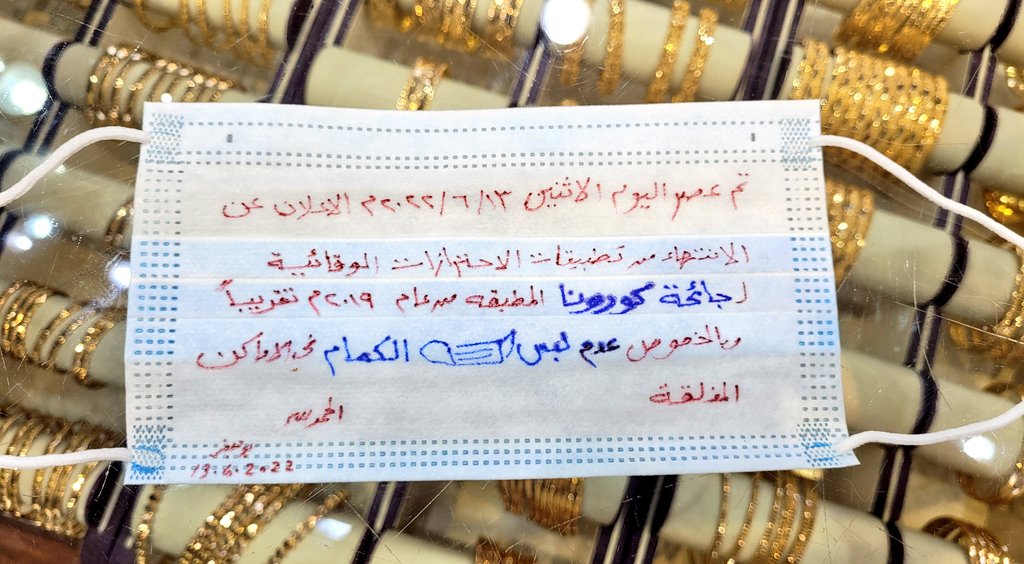 تم عصر اليوم الاثنين ٢٠٢٢/٦/١٣م الاعلان عن
الانتهاء من تطبيقات الاحترازات الوقائية
لجائحة كورونا المطبقه من عام ٢٠١٩م تقريباً
وبالخصوص عدم لبس الكمام في الاماكن
المغلقة
الحمدلله
13.6.2022